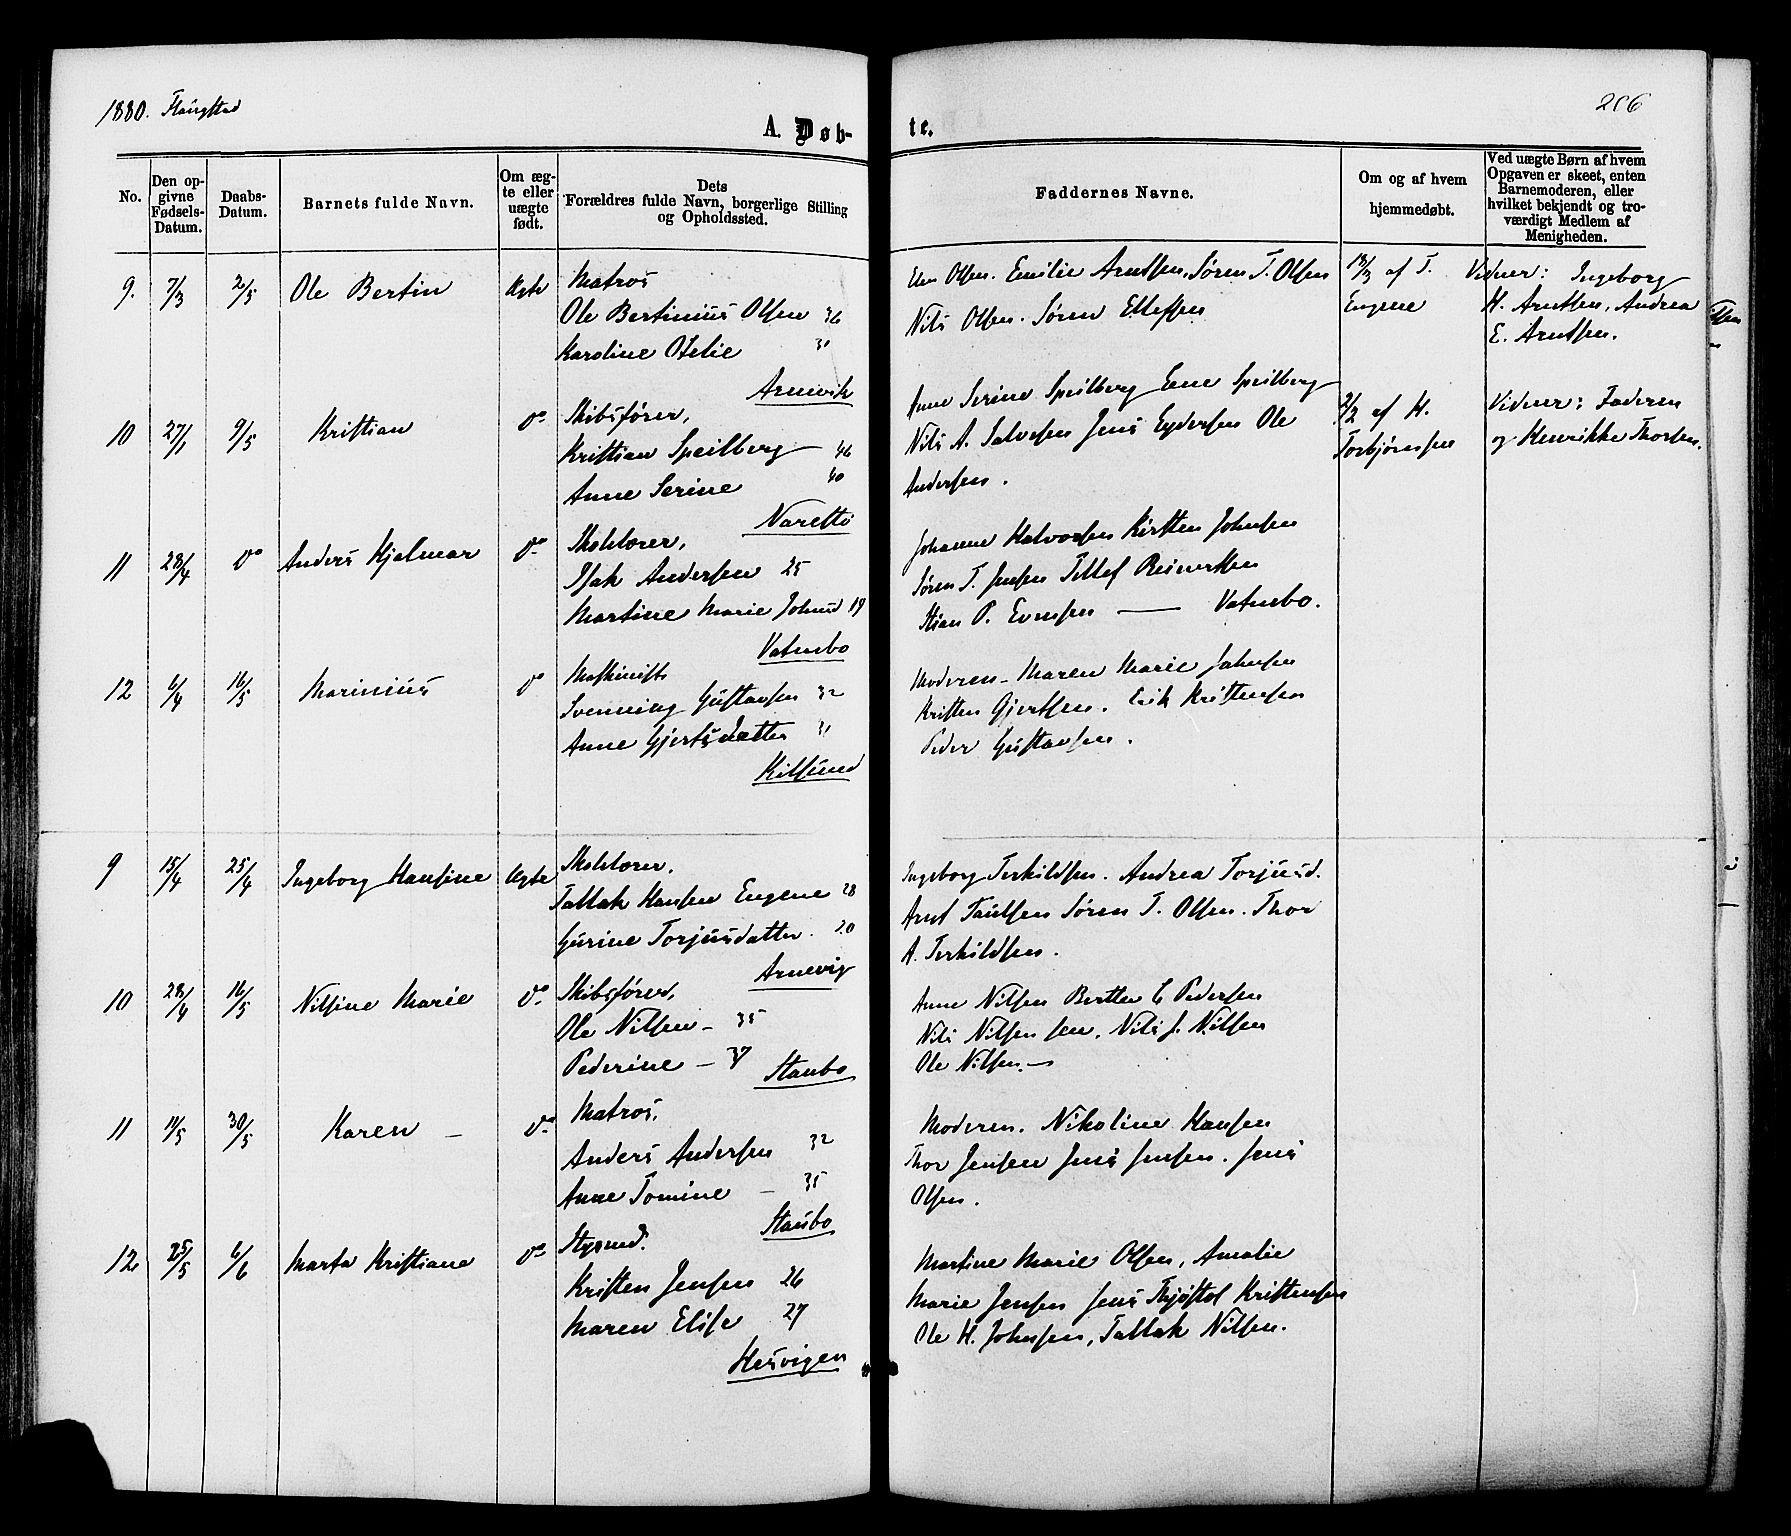 1880. Flangstad
206
A. Døb-
te.
No.
Den op-
givne
Fødsels-
Datum.
Daabs-
Datum.
Barnets fulde Navn.
Om æg-
te eller
uægte
født.
Dets
Forældres fulde Navn, borgerlige Stilling
og Opholdssted.
Faddernes Navne.
Om og af hvem
hjemmedøbt.
Ved uægte Børn af hvem
Opgaven er skeet, enten
Barnemoderen, eller
hvilket bekjendt og tro-
værdigt Medlem af
Menigheden.
9. 7/3 2/5 Ole Bertin Ægte
Matros
Ole Bertinius Olsen 36
Karoline Otelie 31
Arnevik
Elen Olsen. Emilie Arntsen, Søren T. Olsen
Nils Olsen. Søren Ellefsen
13/3 af T.
Engene
Vidner: Ingeborg
H. Arntsen, Andrea
E. Arntsen.
10 27/1 9/5 Kristian do
Skibsfører,
Kristian Speilberg 46
Anne Serine 40
Narestø
Anne Serine Speilberg Lene Speilberg
Nils A. Salvesen Jens Eydersen Ole
Andersen.
2/2 af H.
Torbjørnsen
Vidner: Faderen
og Henrikke Thorsen.
11 28/4 do Anders Hjalmar do
Skolelærer,
Isak Andersen 25
Martine Marie Johnsd 19
Vatnebo
Johanne Halvorsen Kirsten Johnsen
Søren T. Jensen Tellef Reinertsen
Stian P. Evensen — Vatnebo.
12 6/4 16/5 Marinius do
Maskinist
Svenning Gustavsen 32
Anne Gjertsdatter 31
Kilsund
Moderen - Maren Marie Johnsen
Kristen Gjertsen. Erik Kristensen
Peder Gustavsen.
9 15/4 25/4 Ingeborg Hansine Ægte
Skolelærer,
Tallak Hansen Engene 28
Gurine Torjusdatter. 20
Arnevig
Ingeborg Terkildsen. Andrea Torjusd.
Arnt Taulsen Søren T. Olsen. Thor
A. Terkildsen.
10 28/4 16/5 Nilsine Marie do
Skibsfører,
Ole Nilsen - 35
Pederine - 37
Staubo
Anne Nilsen Berthe E Pedersen
Nils Nilsen sen. Nils J. Nilsen
Ole Nilsen. —
11 11/5 30/5 Karen - do
Matros,
Anders Andersen 32
Anne Tomine - 35
Staubo
Moderen. Nikoline Hansen
Thor Jensen Jens Jensen. Jens
Olsen.
12 25/5 6/6 Marta Kristiane do
Styrmd.
Kristen Jensen 26
Maren Elise 27
Hesvigen
Martine Marie Olsen, Amalie
Marie Jensen Jens Thjøstol Kristensen
Ole H. Johnsen, Tallak Nilsen.